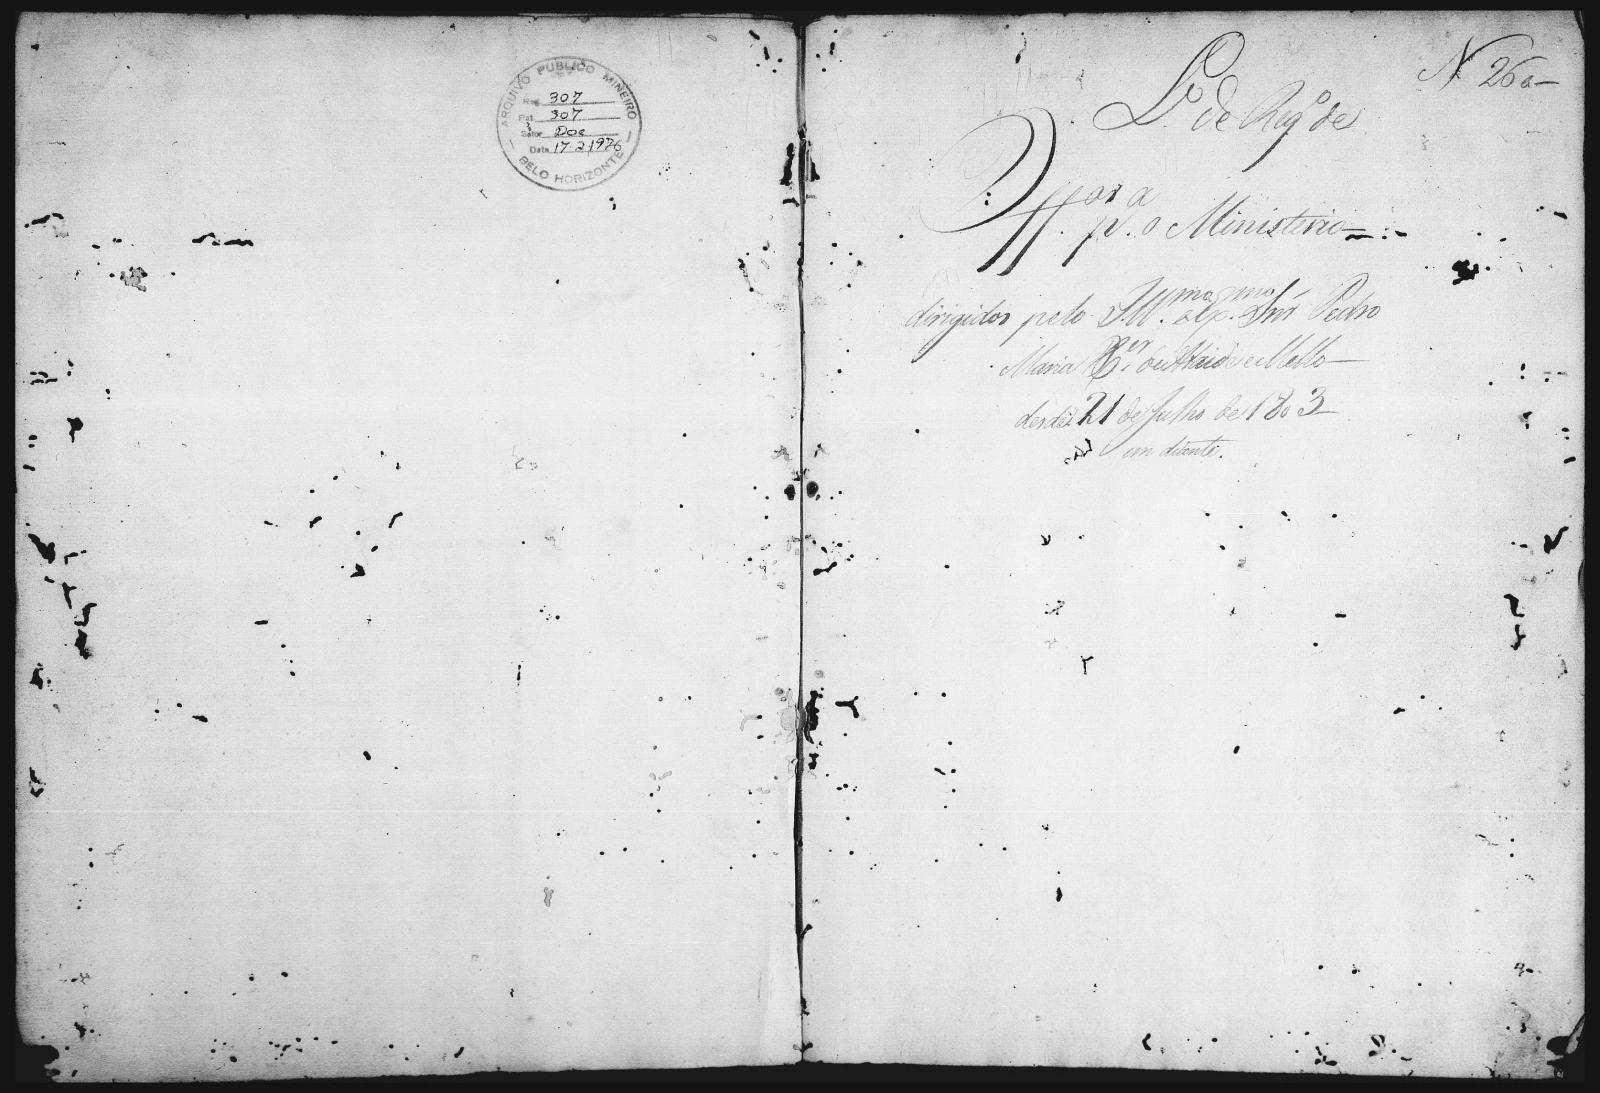 ARQUIVO PUBLICO MINEIRO
Reg 307
Pat. 307
Setor Doc
Data 17-2-1976
— BELO HORIZONTE —
N 26 a—
L.º de Reg.º de
Off.
p.ª o Ministerio=
dirigidos pelo Ill.mo Ex.mo Snr Pedro
Maria X.er de Ataide e Mello—
desde 21 de Julho de 1803—
em diante.